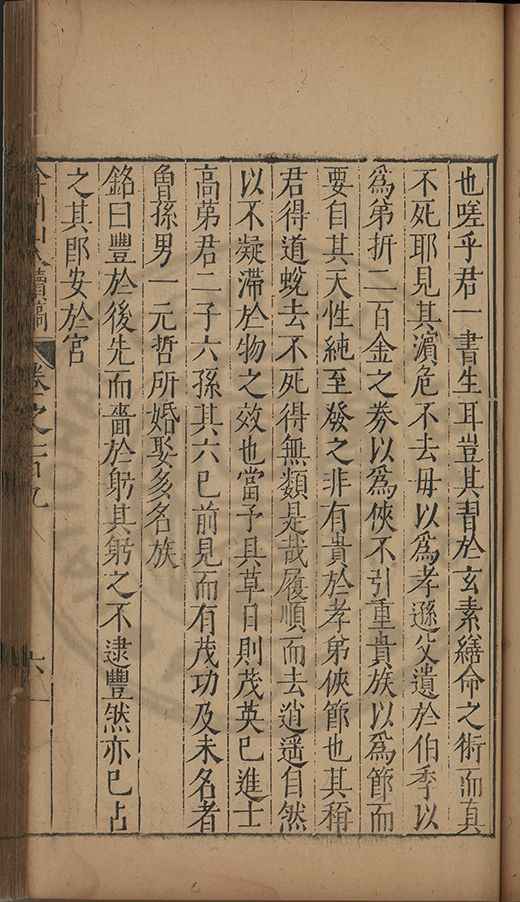 也嗟乎君一書生耳豈其習於玄素繕命之術而真
不死耶見其瀕危不去毋以爲孝遜父遺於伯季以
爲弟折二百金之券以爲俠不引重貴族以爲節而
要自其天性純至發之非有貴於孝弟俠節也其稱
君得道蛻去不死得無類是哉履順而去逍遥自然
以不凝滯於物之效也當予具草日則茂英已進士
高第君二子六孫其六已前見而有茂功及未名者
魯孫男一元哲所婚娶多名族
銘曰豐於後先而嗇於躬其躬之不逮豐然亦已占
之其卽安於宮
續稿 卷之 九 六